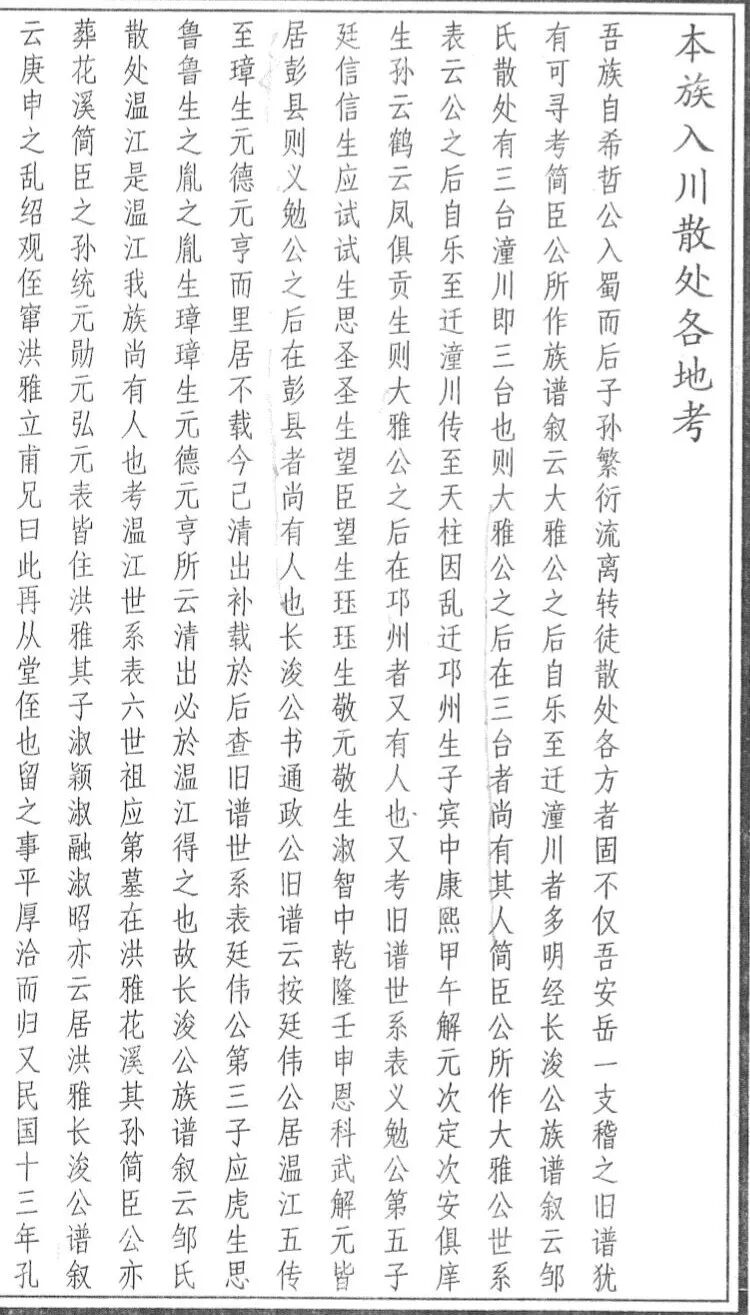 本族入川散处各地考
吾族自希哲公入蜀而后子孙繁衍流离转徒散处各方者固不仅吾安岳一支稽之旧谱犹
有可寻考简臣公所作族谱叙云大雅公之后自乐至迁潼川者多明经长浚公族谱叙云邹
氏散处有三台潼川即三台也则大雅公之后在三台者尚有其人简臣公所作大雅公世系
表云公之后自乐至迁潼川传至天柱因乱迁邛州生子宾中康熙甲午解元次定次安俱庠
生孙云鹤云凤俱贡生则大雅公之后在邛州者又有人也又考旧谱世系表义勉公第五子
廷信信生应试试生思圣圣生望臣望生珏珏生敬元敬生淑智中乾隆壬申恩科武解元皆
居彭县则义勉公之后在彭县者尚有人也长浚公书通政公旧谱云按廷伟公居温江五传
至璋生元德元亨而里居不载今己清出补载於后查旧谱世系表廷伟公第三子应虎生思
鲁鲁生之胤之胤生璋璋生元德元亨所云清出必於温江得之也故长浚公族谱叙云邹氏
散处温江是温江我族尚有人也考温江世系表六世祖应第墓在洪雅花溪其孙简臣公亦
葬花溪简臣之孙统元勋元弘元表皆住洪雅其子淑颖淑融淑昭亦云居洪雅长浚公谱叙
云庚申之乱绍观侄窜洪雅立甫兄曰此再从堂侄也留之事平厚洽而归又民国十三年孔